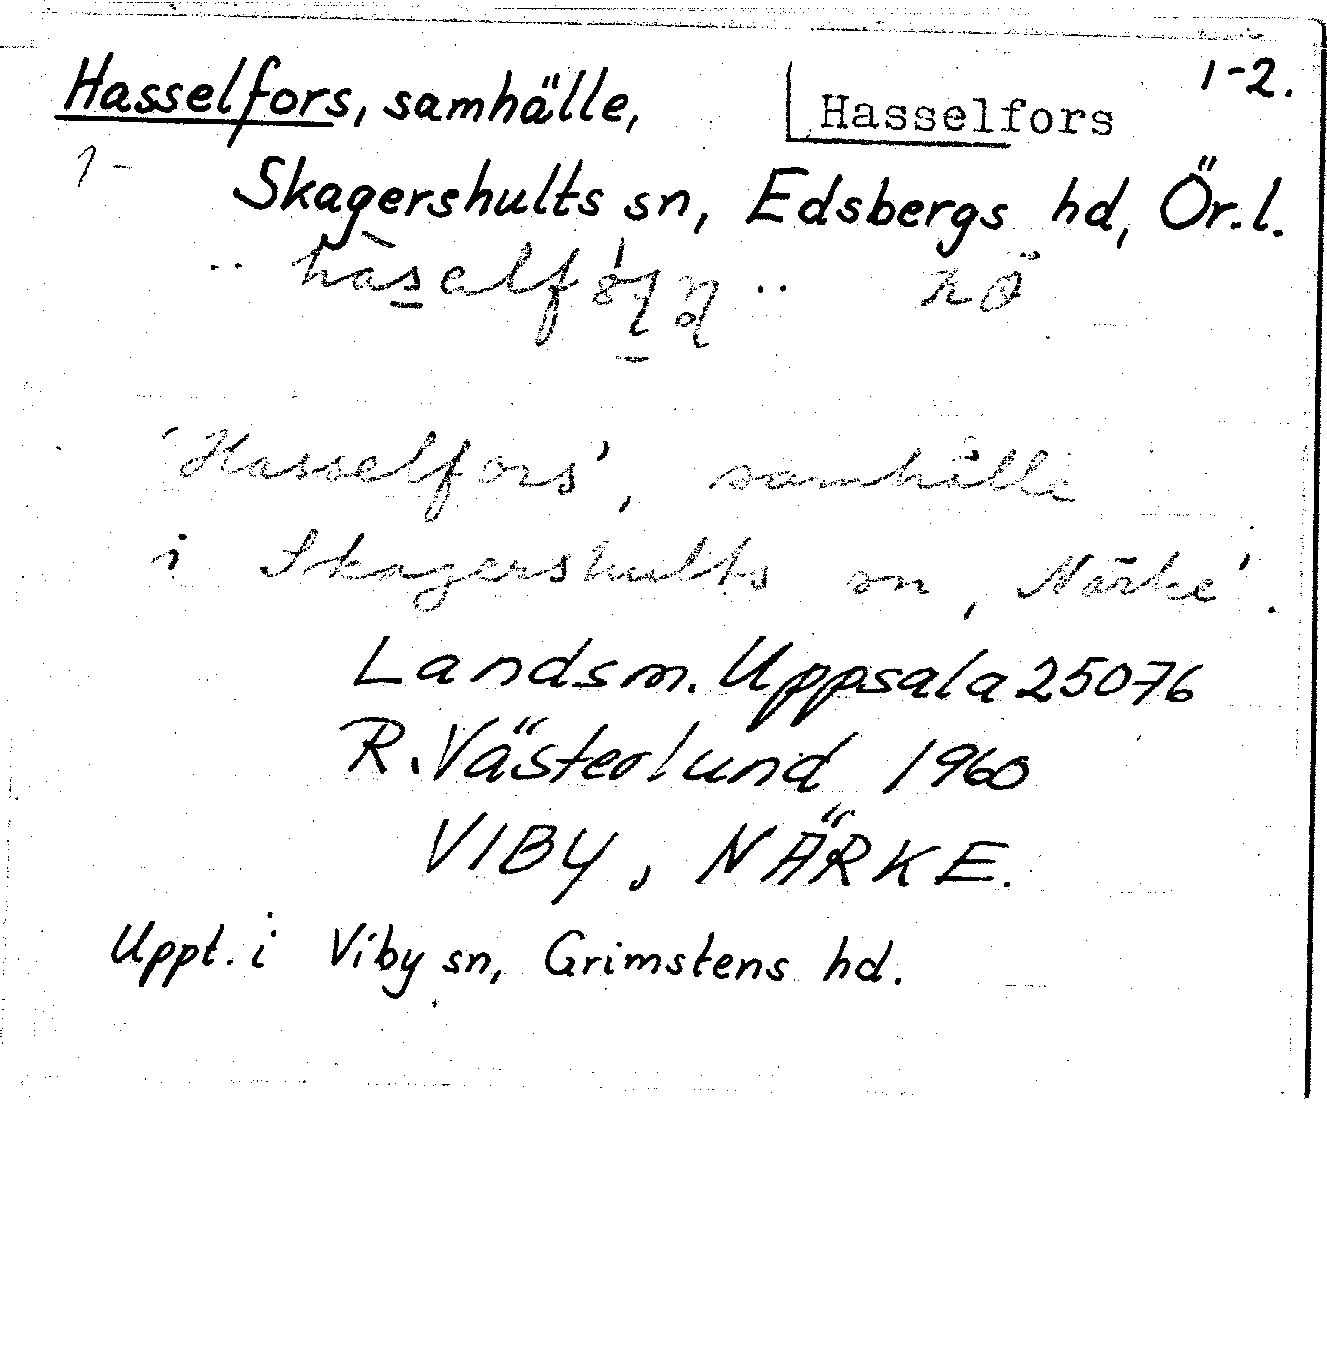 Hasselfors, samhälle,
Hasselfors
1-2.
1-
Skagershults sn, Edsbergs hd, Ör.l.
'Hasselfors', samhälle
i Skagershults sn, Närke'.
Landsm. Uppsala 25076
R. Västerlund 1960
VIBY, NÄRKE.
Uppt. i Viby sn, Grimstens hd.